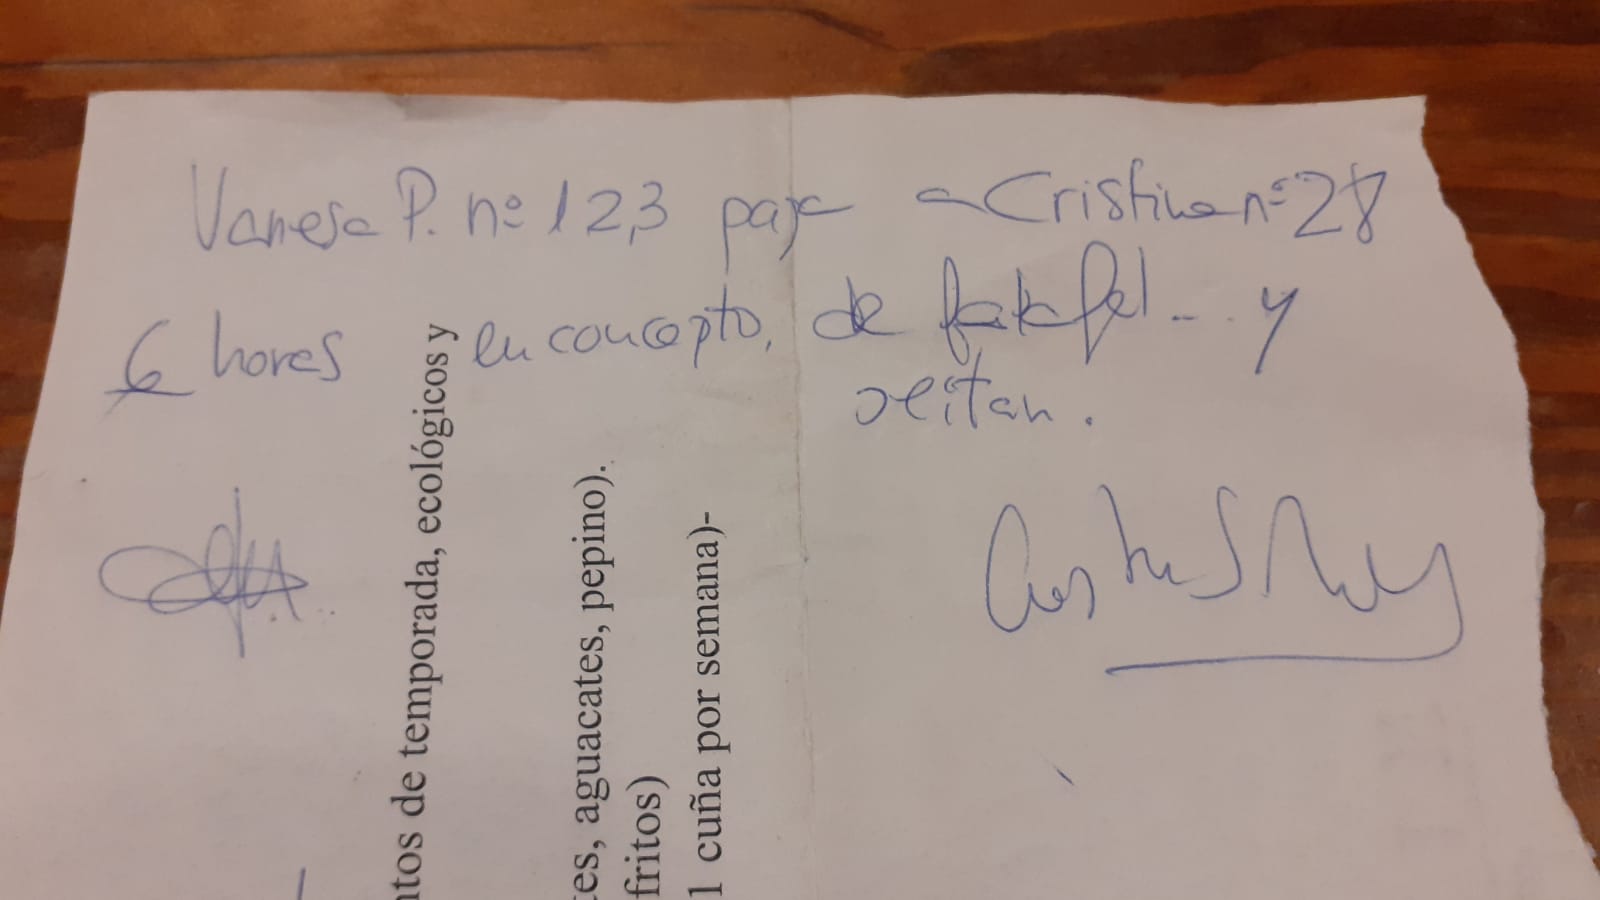 Vanesa P. nº 123 paga a Cristina nº 28
6 horas en concepto, de falafel... y
seitan.
ntos de temporada, ecológicos y
tes, aguacates, pepino).
fritos)
1 cuña por semana)-